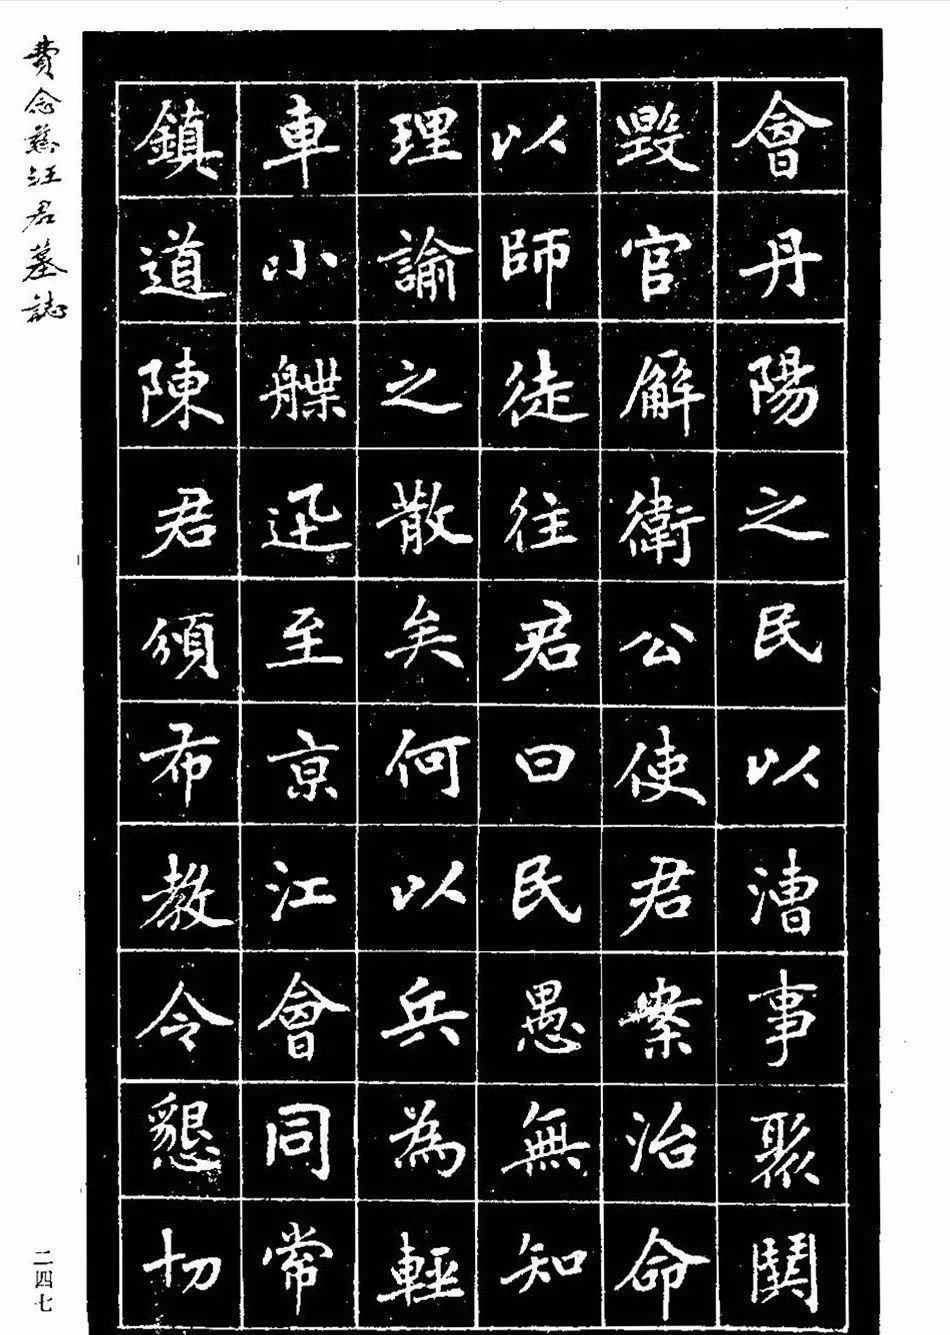 會丹陽之民以漕事聚鬨
毀官廨衛公使君案治命
以師徒往君曰民愚無知
理諭之散矣何以兵為輕
車小艓迅至京江會同常
鎮道陳君頒布教令懇切
費念慈汪君墓誌
二四七